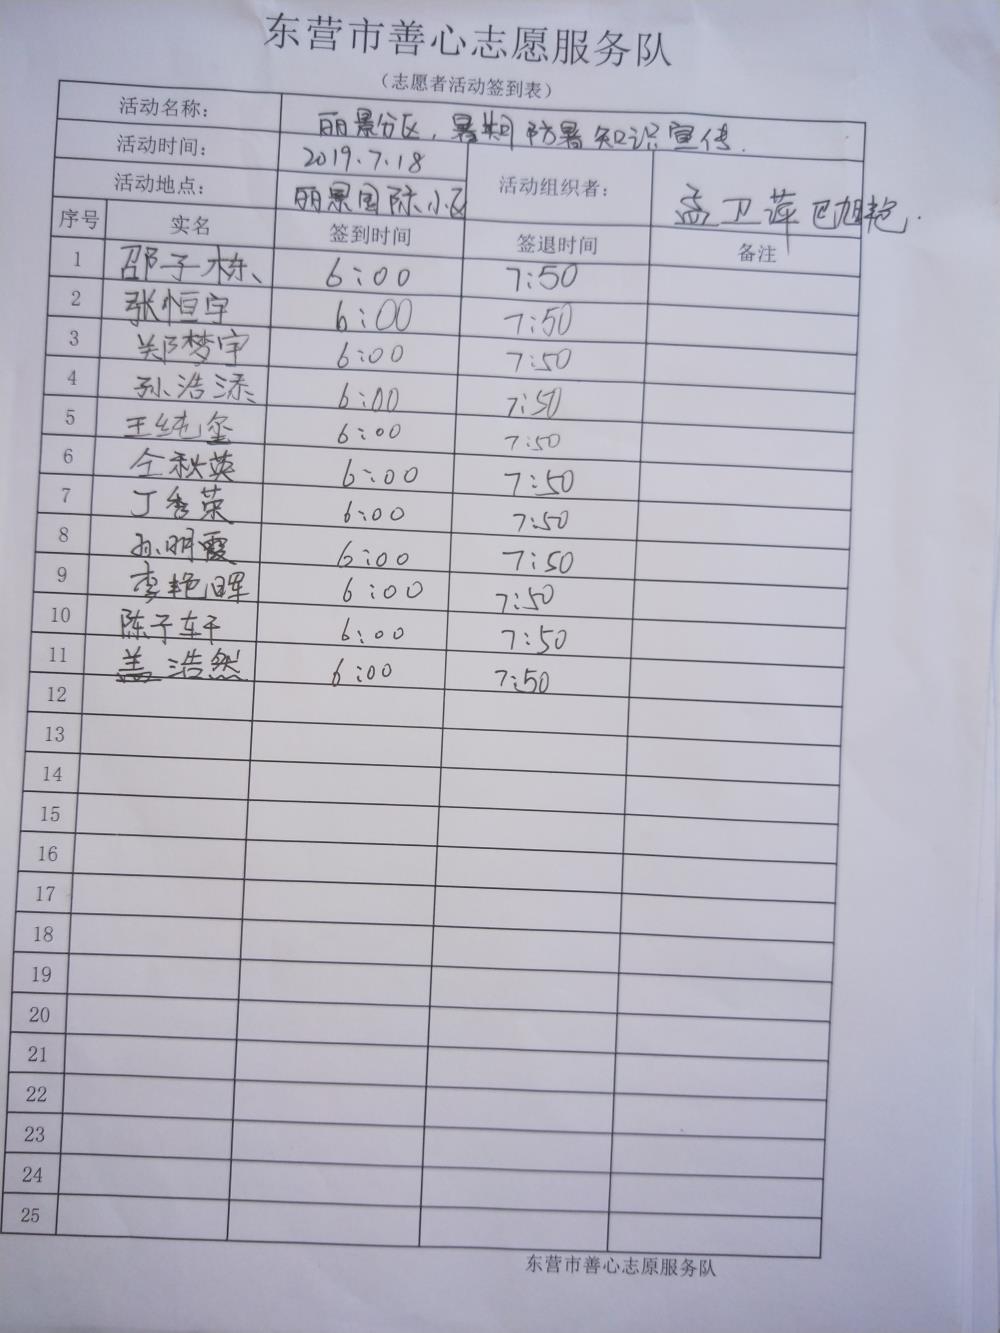 东营市善心志愿服务队
（志愿者活动签到表）
活动名称： 丽景分区，暑期防暑知识宣传.
活动时间： 2019.7.18
活动地点： 丽景国际小区 活动组织者： 孟卫萍 巴旭艳.
序号 实名 签到时间 签退时间 备注
1 邵子栋、 6:00 7:50
2 张恒宇 6:00 7:50
3 郑梦宇 6:00 7:50
4 孙浩添 6:00 7:50
5 王纯玺 6:00 7:50
6 仝秋英 6:00 7:50
7 丁秀荣 6:00 7:50
8 孙明霞 6:00 7:50
9 李艳晖 6:00 7:50
10 陈子轩 6:00 7:50
11 盖浩然 6:00 7:50
12
13
14
15
16
17
18
19
20
21
22
23
24
25
东营市善心志原服务队